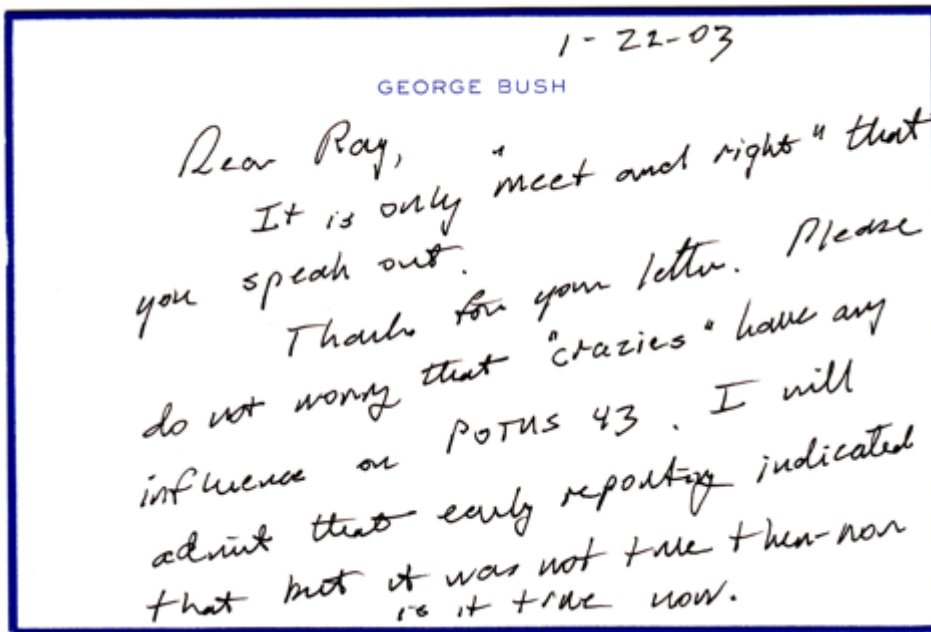 1-22-03
GEORGE BUSH
Dear Ray,
It is only "meet and right" that
you speak out.
Thanks for your letter. Please
do not worry that "crazies" have any
influence on POTUS 43. I will
admit that early reporting indicated
that but it was not true then-nor
is it true now.